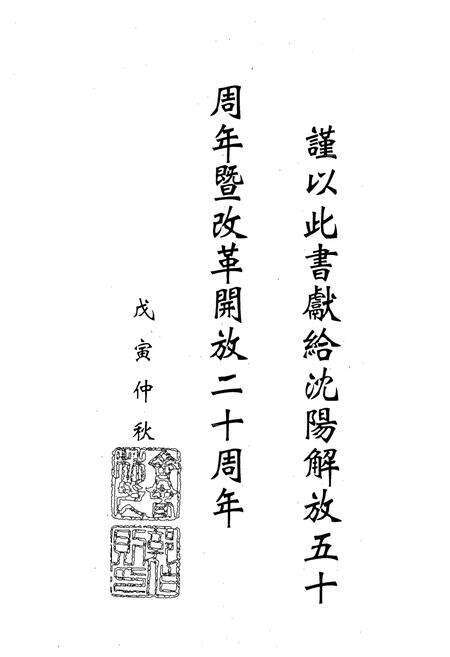 謹以此書獻給沈陽解放五十
周年暨改革開放二十周年
戊寅仲秋